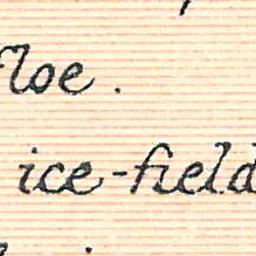 floe.
ice-field